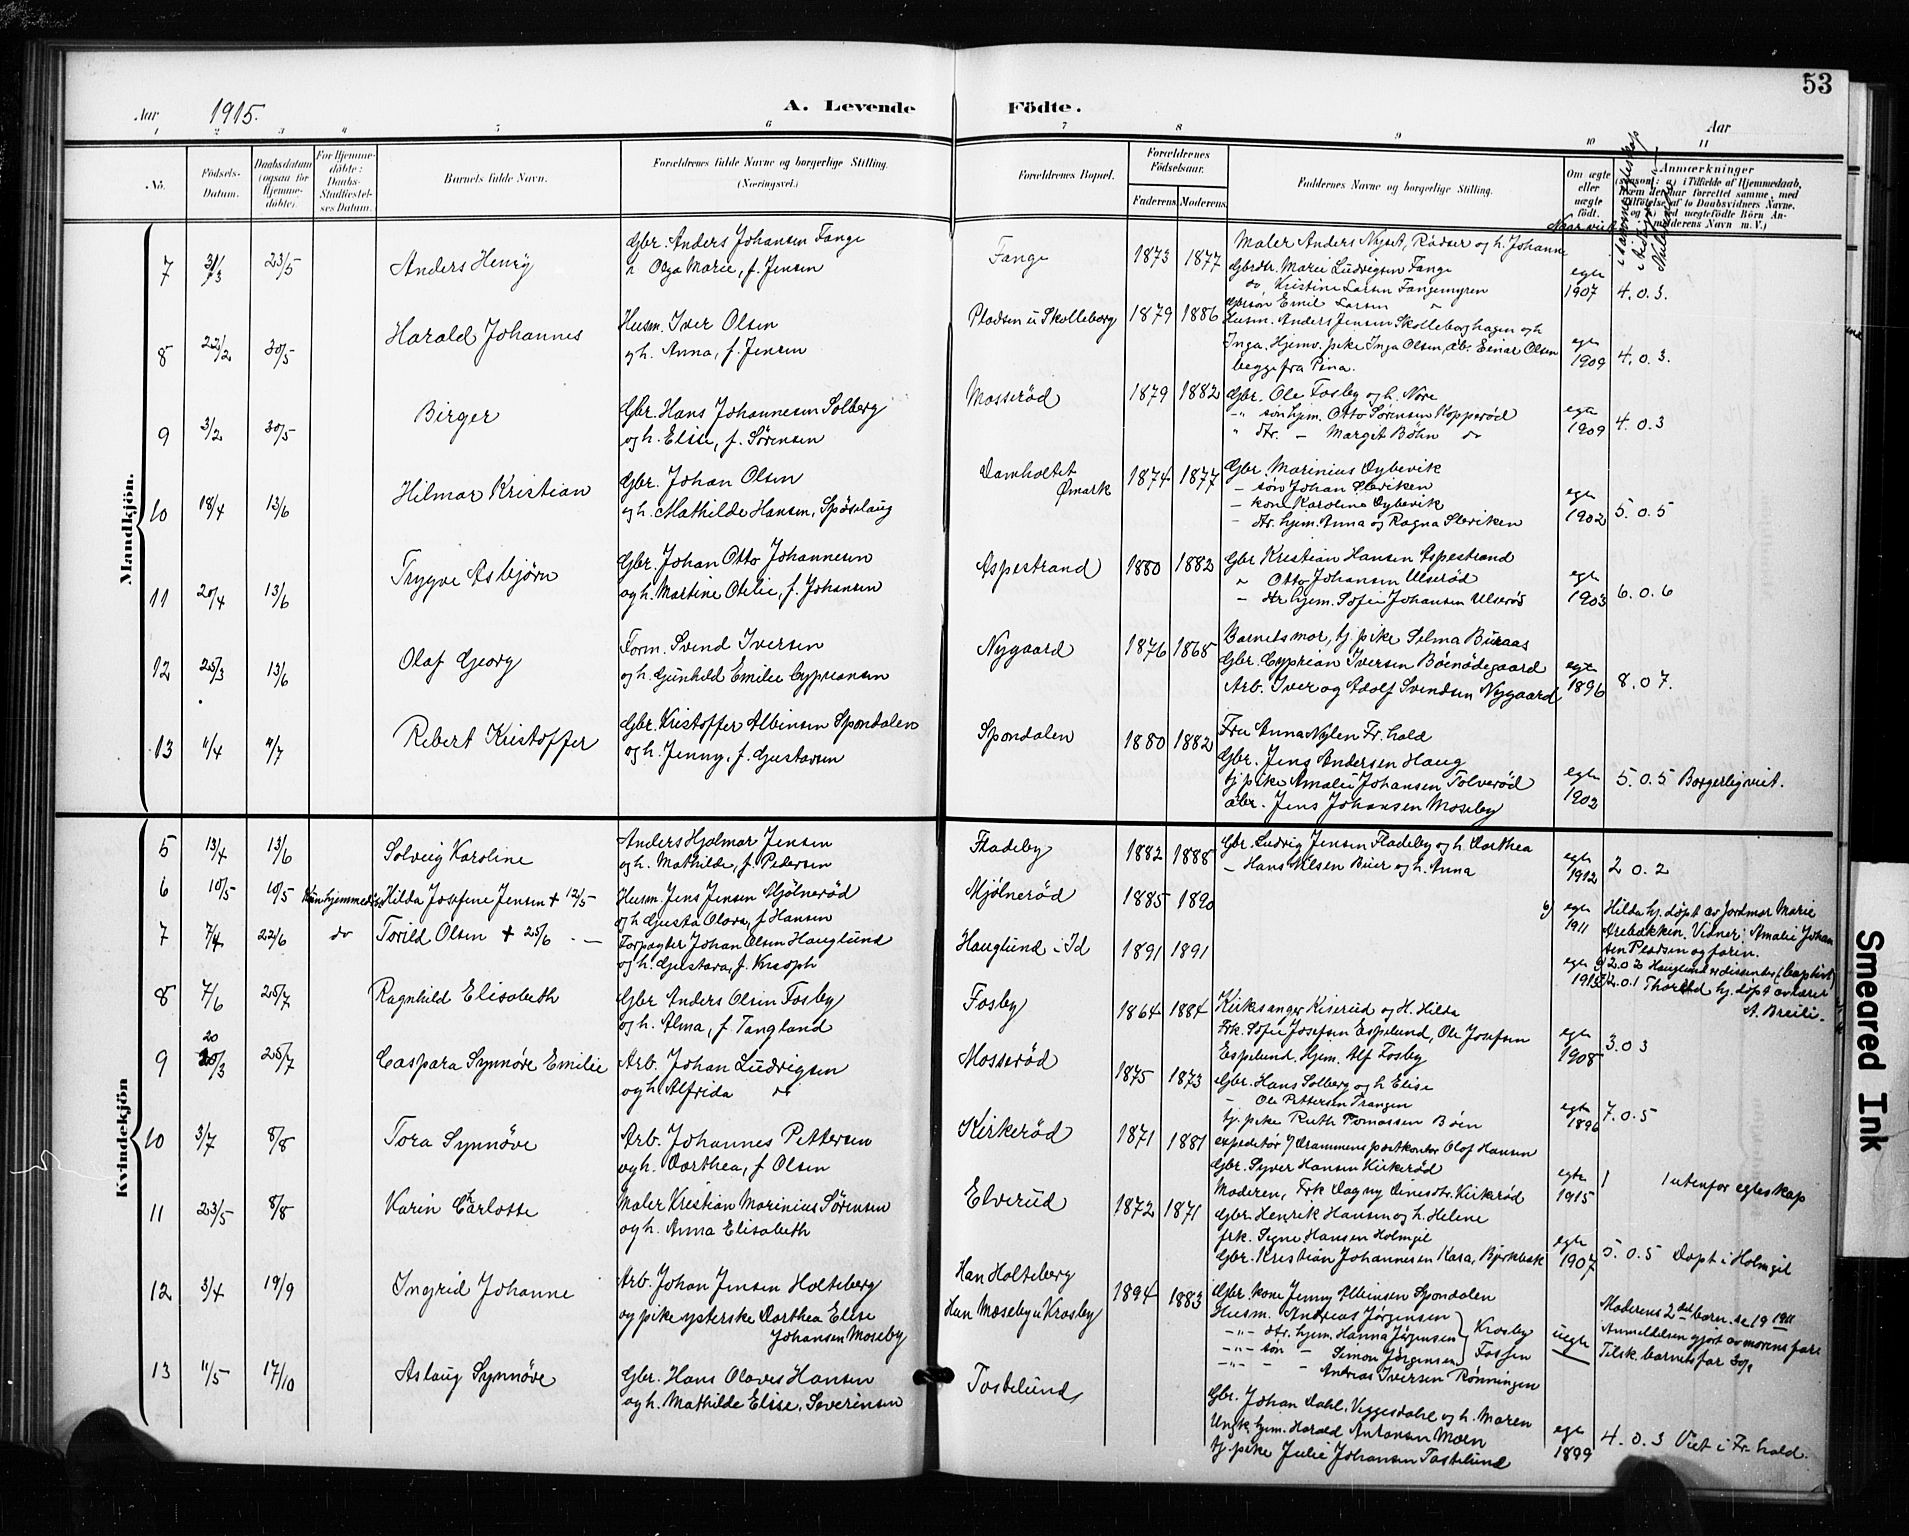 53
Aar 1915. A. Levende Födte. Aar
1 2 3 4 5 6 7 8 9 10 11
No. Födsels-Datum. Daabsdatum (ogsaa for Hjemmedöbte). For Hjemmedöbte: Daabs-Stadfæstelses Datum. Barnets fulde Navn. Forældrenes fulde Navne og borgerlige Stilling. (Næringsvei.) Forældrenes Bopæl. Forældrenes Födselsaar. Faderens Moderens Faddernes Navne og borgerlige Stilling. Om ægte eller uægte födt. Anmærkninger
Mandkjön.
7 31/3 23/5 Anders Henry
Gbr. Anders Johansen Fange
Olga Marie, f. Jensen
Fange 1873 1877
Maler Anders Nyset, Rødser og h. Johanne
Gbrdtr. Marie Ludvigsen Fange
do Kristine Larsen Fangemyren
Gbrsøn Emil Larsen
egte 1907 4.0.3.
8 22/2 30/5 Harald Johannes
Husm. Iver Olsen
og h. Anna, f. Jensen
Pladsen u Skolleborg 1879 1886
Husm. Anders Jensen Skolleborghagen og h
Inga. Hjemv. pike Inga Olsen, Einar Olsen
begge fra
egte 1909 4.0.3.
9 3/2 30/5 Birger
Gbr. Hans Johannesen Solberg
og h. Elise, f. Sørensen
Mosserød 1879 1882
Gbr. Ole Fosby og h. Nore
søn hjm. Otto Sørensen Kopperød
dtr. - Margit Bøhn do
egte 1909 4.0.3
10 18/4 13/6 Hilmar Kristian
Gbr. Johan Olsen
og h. Mathilde Hansen, Spøselaug
Damholtet Ømark 1874 1877
Gbr. Marinius Dybevik
- søn Johan Sleviken
- kone Karoline Dybevik
- dtr. hjm. Anna og Ragna Sleviken
egte 1902 5.0.5
11 20/4 13/6 Trygve Asbjørn
Gbr. Johan Otto Johannesen
og h. Martine Otilie, f. Johansen
Aspestrand 1880 1882
Gbr Kristian Hansen Aspestrand
" Otto Johansen Ulserød
- dtr hjm. Sofie Johansen Ulserød
egte 1903 6.0.6
12 25/3 13/6 Olaf Georg
Form. Svend Iversen
og h. Gunhild Emilie Cypriansen
Nygaard 1876 1865
Barnets mor, tj pike Selma Buraas
Gbr. Cyprian Iversen Böenödegaard
Arb. Iver og Adolf Svendsen Nygaard
egte 1896 8.0 7.
13 11/4 11/7 Robert Kristoffer
Gbr. Kristoffer Albinsen Spondalen
og h. Jenny, f. Gustavsen
Spondalen 1880 1882
Fru Anna Nylen Fr. hald
Gbr. Jens Andersen Haug
tj pike Amalie Johansen Tolverød
Gbr. Jens Johansen Moseby
egte 1902 5.0.5 Borgerlig viet.
Kvindekjön
5 13/4 13/6 Solveig Karoline
Anders Hjalmar Jensen
og h. Mathilde, f. Pedersen
Fladeby 1882 1888
Gbr. Ludvig Jensen Fladeby og h Dorthea
- Hans Nilsen Buer og h. Anna
egte 1912 2 0.2
6 10/5 10/5 Kun hjemmedöbt Hilda Josefine Jensen + 12/5
Husm. Jens Jensen Mjølnerød
og h Gusta Olava, f. Hansen
Mjølnerød 1885 1890
egte 1911
Hilda hj. døpt av Jordmor Marie
Arebakken. Vidner: Amalie Johansen Pladsen og faren.
7 7/4 22/6 do Torild Olsen + 25/6
Forpagter Johan Olsen Hauglund
og h. Gustava, f. Knoph
Hauglund i Id 1891 1891
egte 1915
2.0 2 Hauglund er dissenter (baptist)
2.0.1 Thorild hj. døpt av lærer
A. Breili.
8 7/6 25/7 Ragnhild Elisabeth
Gbr Anders Olsen Fosby
og h. Alma, f. Tangland
Fosby 1864 1884
Kirkesanger Kiserud og H. Hilda
Frk. Sofie Josefsen Espelund, Ole Josefsen
Espelund, Hjm. Alf Fosby
egte 1908 3.0 3
9 20/3 25/7 Caspara Synnøve Emilie
Arb. Johan Ludvigsen
og h Alfrida do
Mosserød 1875 1873
Gbr. Hans Solberg og h Elise
- Ole Pettersen Trangen
tj. pike Ruth Tomassen Böen
egte 1896 7.0.5
10 3/7 8/8 Tora Synnøve
Arb. Johannes Pettersen
og h. Dorthea, f Olsen
Kirkerød 1871 1881
expeditør v/ Drammens postkontor Olof Hansen
Gbr. Syver Hansen Kirkerød
Moderen, Frk Dagny Kirkerød
egte 1915 1 1 utenfor egteskap
11 23/5 8/8 Karin Charlotte
Maler Kristian Marinius Sørensen
og h. Anna Elisabeth
Elverud 1872 1871
Gbr. Henrik Hansen og h. Helene
frk. Signe Hansen Holmgil
Gbr. Kristian Johannesen Kasa, Bjørkebæk
egte 1907 5.0.5 Døpt i Holmgil
12 3/4 19/9 Ingrid Johanne
Arb. Johan Jensen Holteberg
og pike ysterske Dorthea Elise
Johansen Moseby
Han Holteberg
Hun Moseby u Krosby 1894 1883
Gbr. kone Jenny Albinsen Spondalen
Husm. Andreas Jørgensen
dtr. hjm. Hanna Jørgensen Krosby
søn - Simon Jørgensen Fossen
Andreas Iversen Rønningen
uegte
Moderens 2det barn. se 19 1911
Anmeldelsen gjort av morens far
Tilsk. barnefar 30/9
13 11/5 17/10 Aslaug Synnøve
Gbr. Hans Olaves Hansen
og h. Mathilde Elise, Severinsen
Tostelund
Gbr. Johan Dahl, Viggesdahl og h. Maren
Ungk. hjm. Harald Antonsen Moen
tj. pike Julie Johansen Tostelund
egte 1899 4.0.3 Viet i Fr. hald.
Smeared Ink